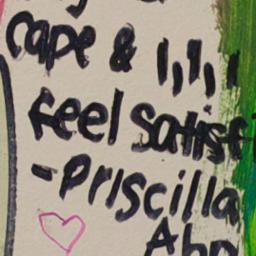 cape & I,I,I
feel satisf
-Priscilla
Ahn